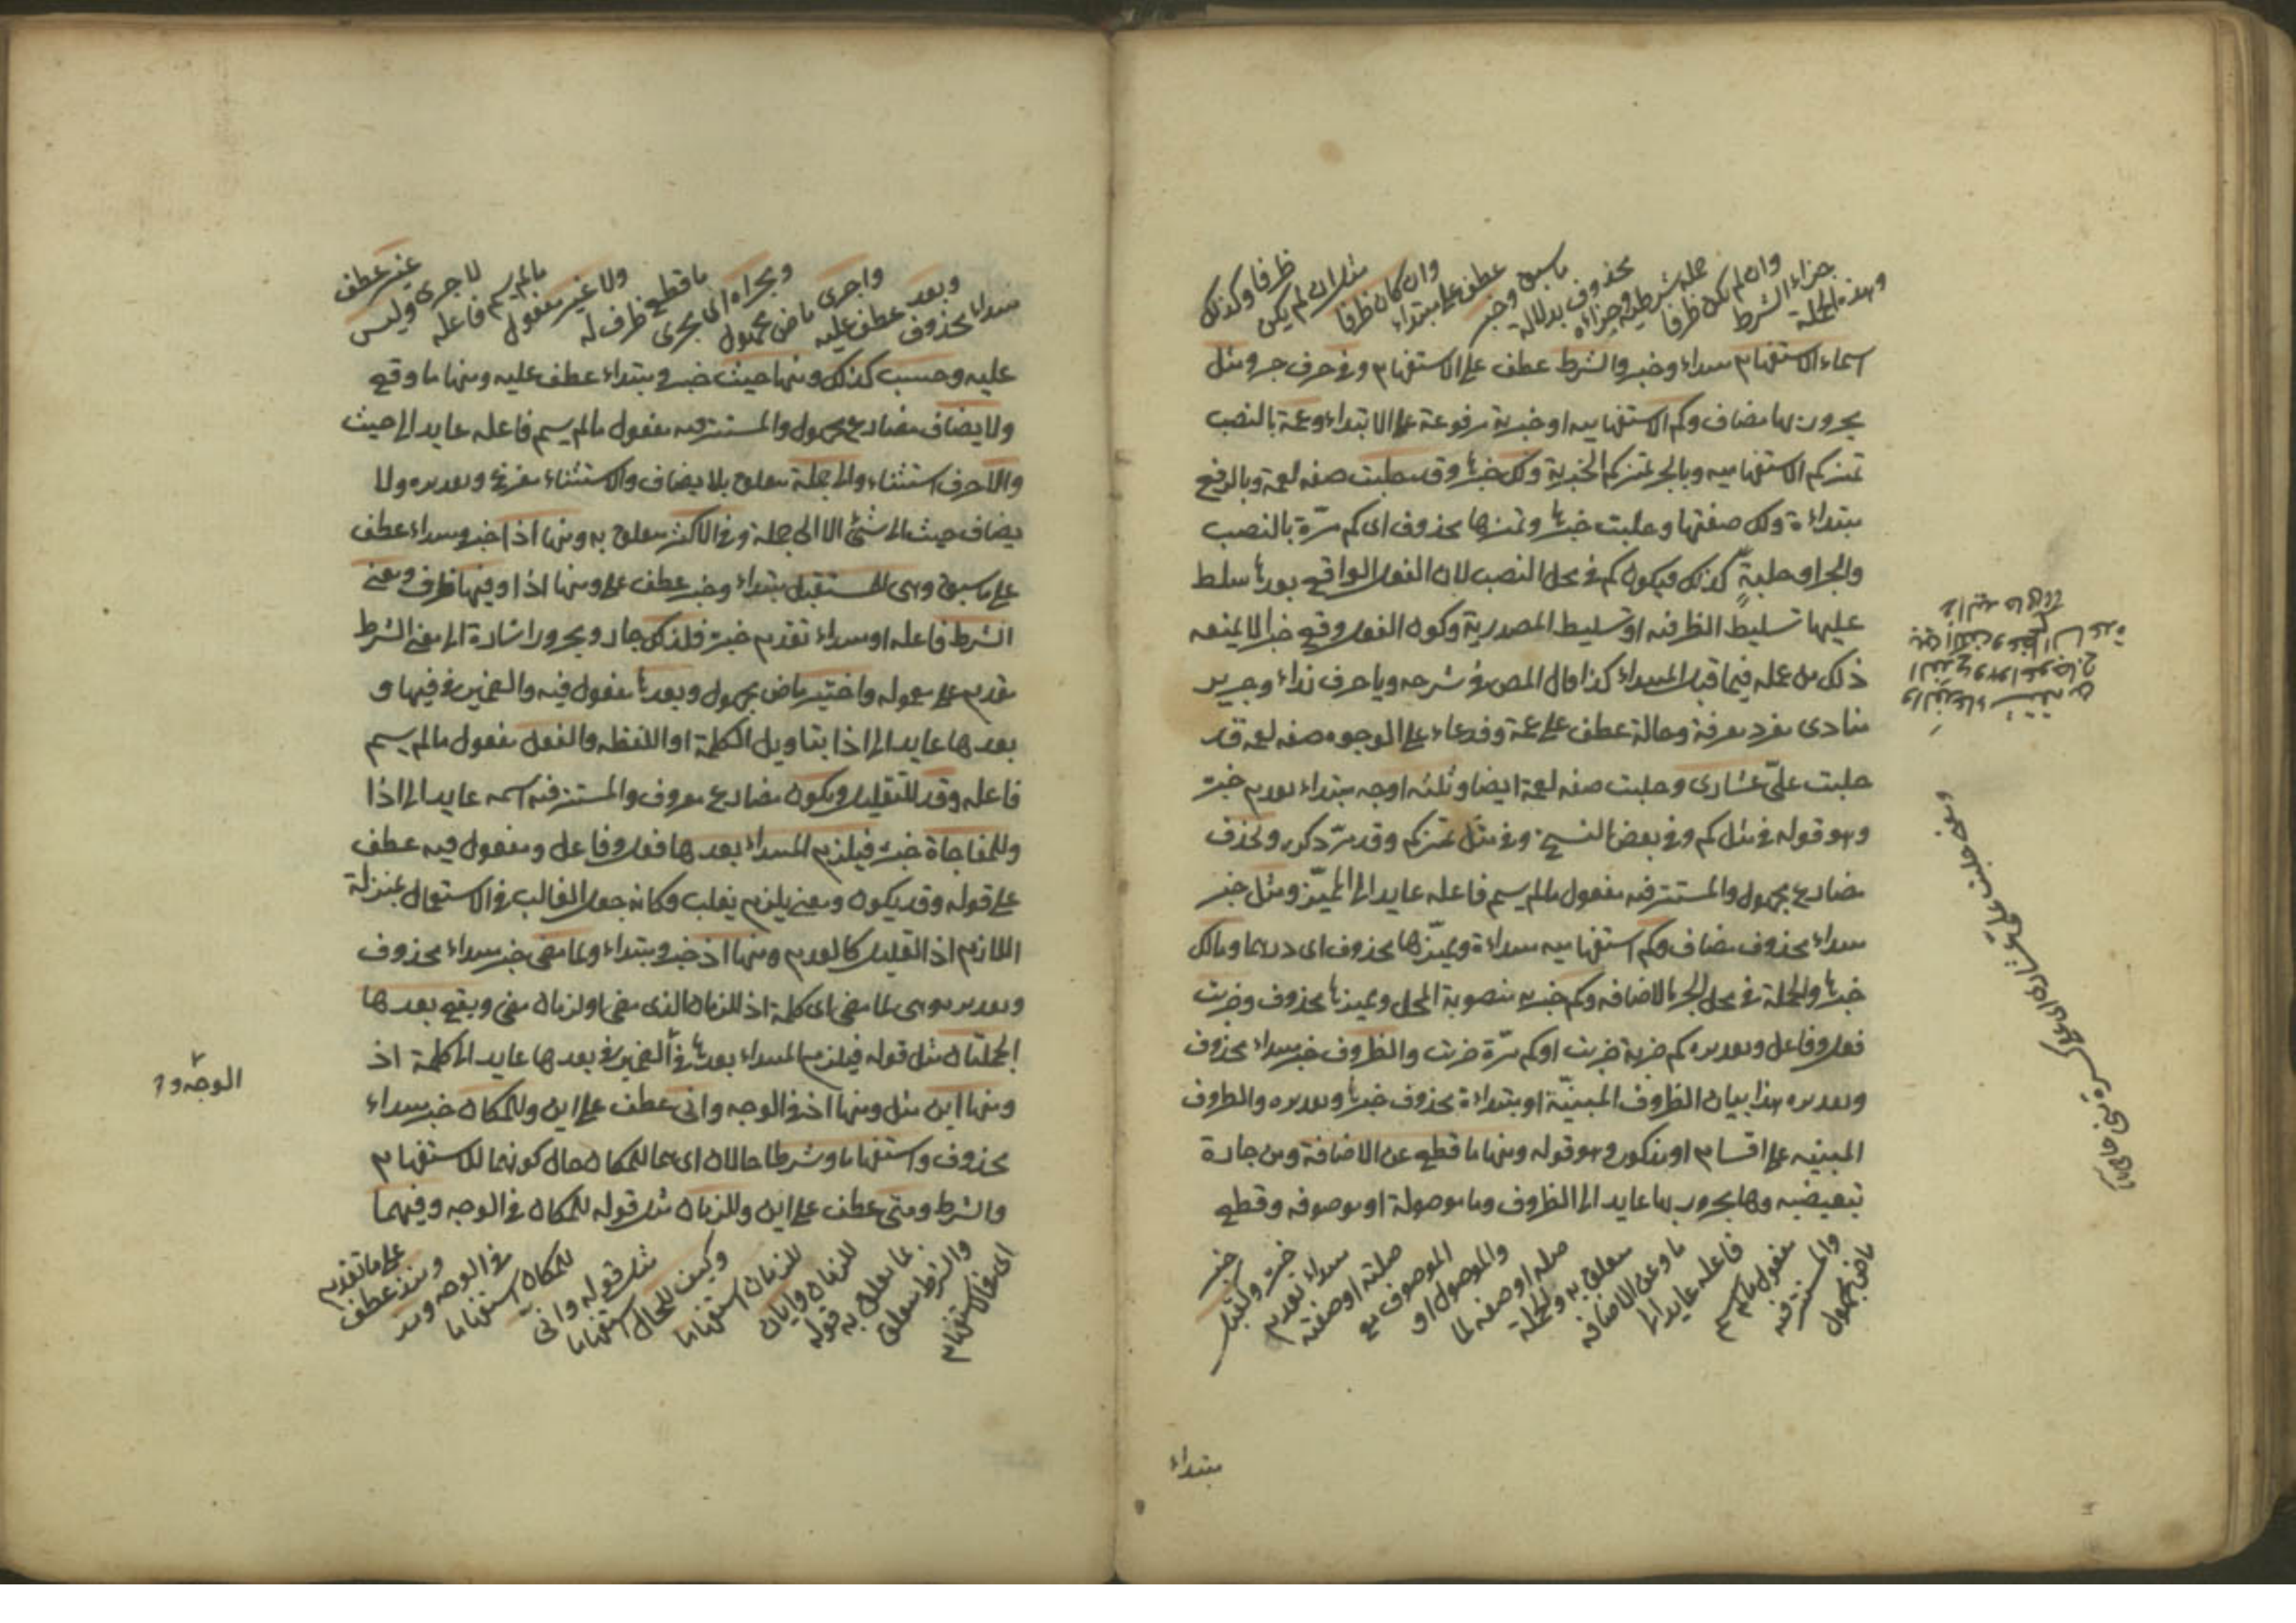 وهذه الجملة
جزاء الشرط
وان لم يكن ظرفا
جملة شرطية وجزاؤه
محذوف بدلالة
ما سبق وخبر
عطف على مبتداء
وان كان ظرفا
مثل ان لم يكن
ظرفا وكذلك
اسماء الاستفهام مبتداء وخبر والشرط عطف على الاستفهام وفي حرف جر ومثل
مجرور بها مضاف وكم الاستفهامية او خبرية مرفوعة على الابتداء وعمة بالنصب
تميز كم الاستفهامية وبالجر تميز كم الخبرية ولك خبرها وقد حلبت صفة لعمة وبالرفع
مبتداءة ولك صفتها وحلبت خبرها وتميزها محذوف اى كم مرّة بالنصب
والجر او حلبةٍ كذلك فيكون كم في محل النصب لان الفعل الواقع بعدها سلط
عليها تسليط الظرفية او تسليط المصدرية وكون الفعل وقع خبرا لا يمنعه
ذلك من عمله فيما قبل المبتداء كذا قال المص في شرحه ويا حرف نداء وجرير
منادى مفرد معرفة وخالة عطف على عمة وفدعاء على الوجوه صفة لعمة قد
حلبت علىّ عشارى وحلبت صفة لعمة ايضا وثلثة اوجه مبتداء تقدم خبره
وهو قوله في مثل كم وفي بعض النسخ وفي مثل تميز كم وقد مرّ ذكره ويحذف
مضارع مجهول والمستتر فيه مفعول ما لم يسم فاعله عايد الى المميّز ومثل خبر
مبتداء محذوف مضاف وكم استفهامية مبتداءة ومميّزها محذوف اى درهما ومالك
خبرها والجملة في محل الجر بالاضافة وكم خبرية منصوبة المحل ومميزها محذوف وضربت
فعل وفاعل وتقديره كم ضربة ضربت او كم مرّة ضربت والظروف خبر مبتداء محذوف
وتقديره هذا بيان الظروف المبنيّة او مبتداءة محذوف خبرها وتقديره والظروف
المبنية على اقسام او مذكور وهو قوله ومنها ما قطع عن الاضافة ومن جارة
تبعيضية وها مجرور بها عايد الى الظروف وما موصولة او موصوفة وقطع
ماض مجهول
والمستتر فيه
مفعول ما لم يسم
فاعله عايد الى
ما وعن الاضافة
متعلق به والجملة
صلة او صفة لما
والموصول او
الموصوف مع
صلته او صفته
مبتداء تقدم
خبره وكقبل
خبر
مبتداء
مبتداء محذوف
وبعد عطف عليه
واجرى ماض مجهول
ومجراه اى مجرى
ما قطع ظرف له
ولا غير مفعول
ما لم يسم فاعله
لاجرى وليس
غير عطف
عليه وحسب كذلك ومنها حيث خبر ومبتداء عطف عليه ومنها ما وقع
ولا يضاف مضارع مجهول والمستتر فيه مفعول ما لم يسم فاعله عايد الى حيث
والا حرف استثناء والى جملة متعلق بلا يضاف والاستثناء مفرغ وتقديره ولا
يضاف حيث الى شئ الا الى جملة وفي الاكثر متعلق به ومنها اذا خبر ومبتداء عطف
على ما سبق وهى للمستقبل مبتداء وخبر عطف على ومنها اذا وفيها ظرف ومعنى
الشرط فاعله او مبتداء تقديم خبره فلذلك جار ومجرور اشارة الى معنى الشرط
مقدم على معموله واختير ماض مجهول وبعدها مفعول فيه والضمير في فيها و
بعدها عايد الى اذا بتاويل الكلمة او اللفظة والفعل مفعول ما لم يسم
فاعله وقد للتقليل ويكون مضارع معروف والمستتر فيه اسمه عايد الى اذا
وللمفاجاة خبره فيلزم المبتداء بعدها فعل وفاعل ومفعول فيه عطف
على قوله وقد يكون ومعنى يلزم يغلب وكانه جعل الغالب في الاستعمال بمنزلة
اللازم اذ القليل كالعدم ومنها اذ خبر ومبتداء ولما مضى خبر مبتداء محذوف
وتقديره وهى لما مضى اى كلمة اذ للزمان الذى مضى او لزمان مضى ويقع بعدها
الجملتان مثل قوله فيلزم المبتداء بعدها في ان الضمير في بعدها عايد الى كلمة اذ
ومنها اين مثل ومنها اذ في الوجه وانى عطف على اين وللمكان خبر مبتداء
محذوف واستفهاما وشرطا حالان اى هما للمكان حال كونهما للاستفهام
والشرط ومتى عطف على اين وللزمان مثل قوله للمكان في الوجه وفيهما
اى في الاستفهام
والشرط متعلق
بما تعلق به قوله
للزمان وايان
للزمان استفهاما
وكيف للحال استفهاما
مثل قوله وانى
للمكان استفهاما
في الوجه ومذ
ومنذ عطف
على ما تقدم
الوجه و